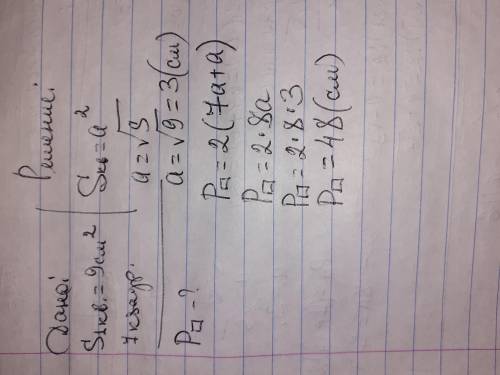 Дано:
S₁кв. = 9 см²
7 квадр.
P▭ - ?
Решение:
Sкв = a²
a = √S
a = √9 = 3 (см)
P▭ = 2(7a+a)
P▭ = 2·8a
P▭ = 2·8·3
P▭ = 48 (см)